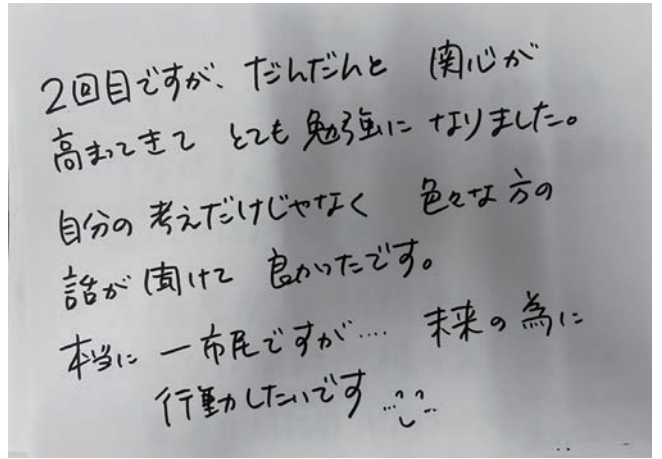 2回目ですが、だんだんと 関心が
高まってきて とても勉強に なりました。
自分の考えだけじゃなく 色々な方の
話が聞けて 良かったです。
本当に 一市民ですが…. 未来の為に
行動したいです